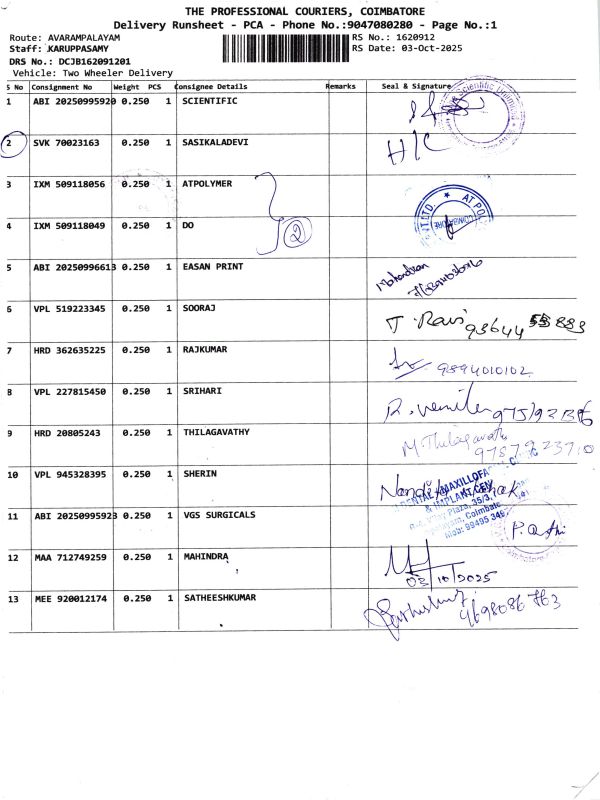 THE PROFESSIONAL COURIERS, COIMBATORE
Delivery Runsheet - PCA - Phone No.:9047080280 - Page No.:1
Route: AVARAMPALAYAM
RS No.: 1620912
Staff: KARUPPASAMY
RS Date: 03-Oct-2025
DRS No.: DCJB162091201
Vehicle: Two Wheeler Delivery
S No Consignment No Weight PCS Consignee Details Remarks Seal & Signature
1 ABI 20250995920 0.250 1 SCIENTIFIC
2 SVK 70023163 0.250 1 SASIKALADEVI H/C
3 IXM 509118056 0.250 1 ATPOLYMER
4 IXM 509118049 0.250 1 DO 2
5 ABI 20250996613 0.250 1 EASAN PRINT
6 VPL 519223345 0.250 1 SOORAJ T. Ravi
7 HRD 362635225 0.250 1 RAJKUMAR 9894010102
8 VPL 227815450 0.250 1 SRIHARI
9 HRD 20805243 0.250 1 THILAGAVATHY M.Thilagavathi
9787923710
10 VPL 945328395 0.250 1 SHERIN
11 ABI 20250995923 0.250 1 VGS SURGICALS
12 MAA 712749259 0.250 1 MAHINDRA
03/10/2025
13 MEE 920012174 0.250 1 SATHEESHKUMAR